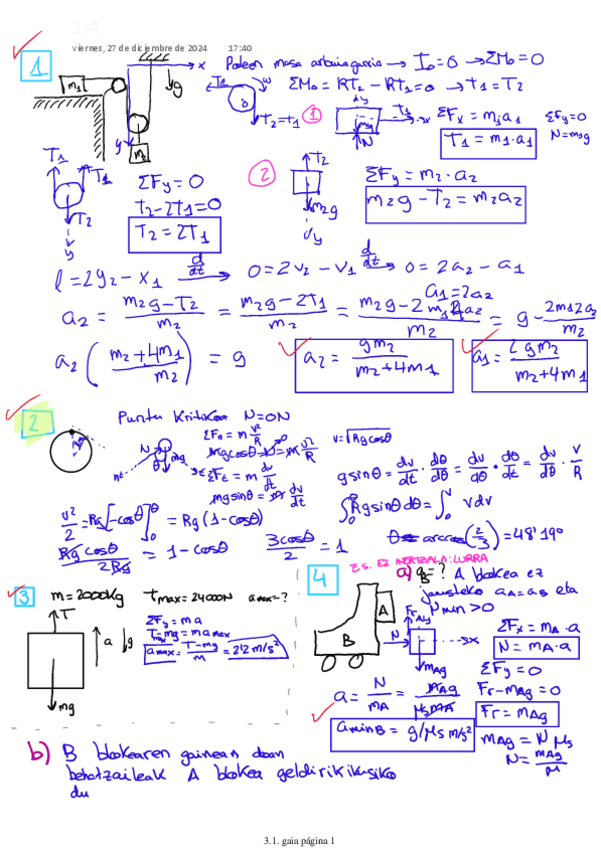 1-4
viernes, 27 de diciembre de 2024 17:40
1
Poleen masa arbuiagarria → I₀=0 → ΣM₀=0
ΣM₀ = RT₂ - RT₁ = 0 → T1 = T2
m1
x
g
y
m2
T₂
ω
T₂=T1
① 
y
T1
x
m1g
N
ΣFx = m1a1
T1 = m1·a1
ΣFy=0
N=m1g
T1 T1
T2
y
ΣFy = 0
T2-2T1=0
T2 = 2T1
②
T2
m2g
y
ΣFy = m2·a2
m2g - T2 = m2a2
l = 2y2 - x1 d/dt → 0 = 2v2 - v1 d/dt → 0 = 2a2 - a1
a1 = 2a2
a2 = (m2g-T2)/m2 = (m2g-2T1)/m2 = (m2g-2m1 2a2)/m2 = g - 2m12a2/m2
a2((m2+4m1)/m2) = g
a2 = gm2/(m2+4m1)
a1 = 2gm2/(m2+4m1)
2
Puntu kritikoa N=0N
ΣFn = m v²/R
mgcosθ - N = m v²/R
v=√Rgcosθ
N
θ
mg
ΣFt = m dv/dt
mgsinθ = m dv/dt
gsinθ = dv/dt · dθ/dθ = dv/dθ · dθ/dt = dv/dθ · v/R
∫₀^θ Rgsinθdθ = ∫₀^v vdv
v²/2 = Rg[-cosθ]₀^θ = Rg(1-cosθ)
Rgcosθ/2Rg = 1-cosθ
3cosθ/2 = 1
θ = arccos(2/3) = 48'19º
3
m = 2000kg
Tmax = 24000N
amax=?
T
a
g
mg
ΣFy = ma
Tmax-mg = m amax
amax = (T-mg)/m = 2'2 m/s²
4
E.S. EZ INERTZIALA: LURRA
a) aB=? A blokea ez
jausteko aA=aB eta
Nmin>0
A
B
Fr
N
x
mAg
ΣFx = mA·a
N = mA·a
ΣFy = 0
Fr-mAg = 0
Fr = mAg
a = N/mA = mAg/μsmA
aminB = g/μs m/s²
mAg = Nμs
N = mAg/μ
b) B blokearen gainean doan
behatzaileak A blokea geldirik ikusiko
du
3.1. gaia página 1